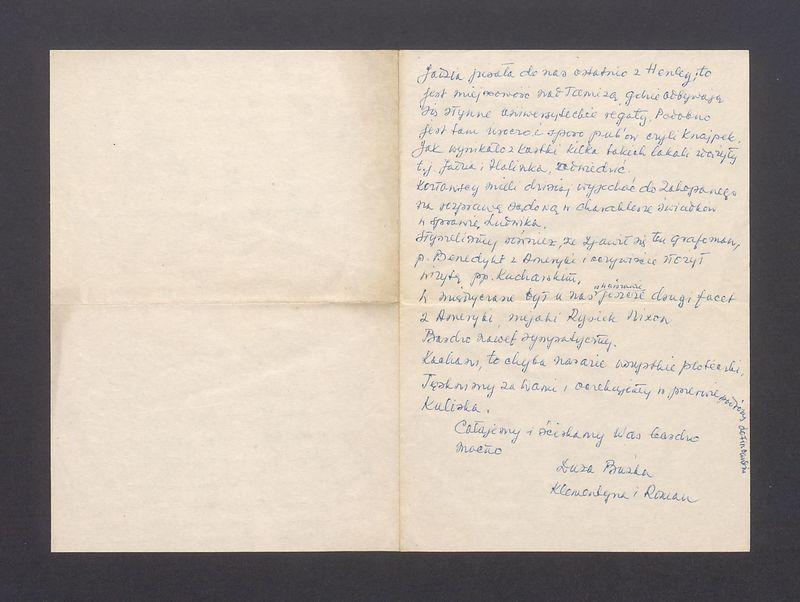 Jadzia pisała do nas ostatnio z Henley, to
jest miejscowość nad Tamizą, gdzie odbywają
się słynne uniwersyteckie regaty. Podobno
jest tam uroczo i sporo pub'ów czyli knajpek.
Jak wynikało z kartki kilka takich lokali zdążyły
t.j. Jadzia i Halinka, odwiedzić.
mieli dzisiaj wyjechać do Zakopanego
na rozprawę sądową w charakterze świadków
w sprawie Ludwika.
Słyszeliśmy również, że zjawił się ten grafoman,
p. Benedykt z Ameryki i oczywiście złożył
wizytę pp. Kucharskim.
W międzyczasie był u nas jeszcze drugi facet
z Ameryki, niejaki Rysiek Nixon
Bardzo nawet sympatyczny.
Kochani, to chyba narazie wszystkie ploteczki,
Tęsknimy za Wami i czekajcie na pewnie
Kuliska.
Całujemy i ściskamy Was bardzo
mocno
Duża Buźka
Klementyna i Roman